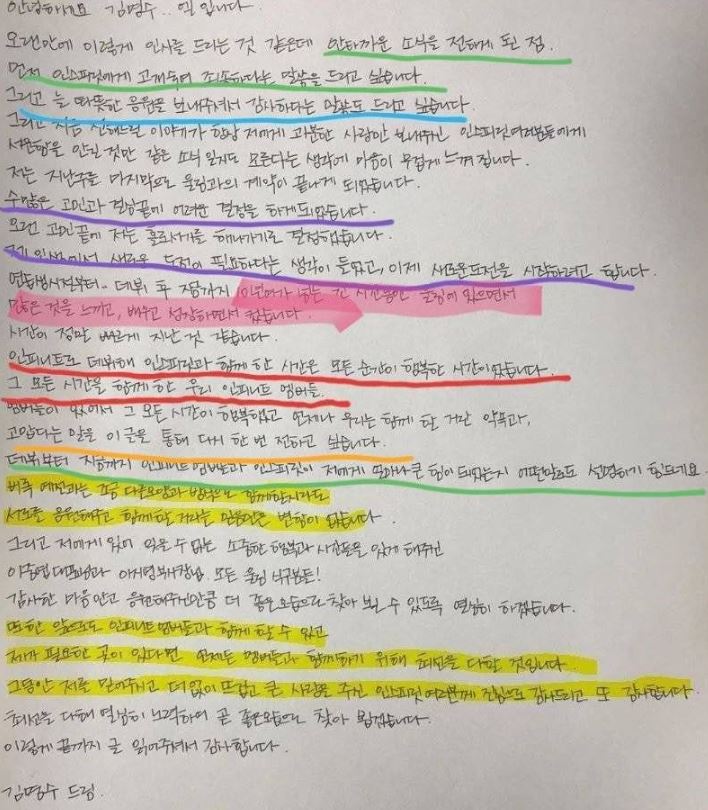 안녕하세요 김명수.. 엘입니다.
오랜만에 이렇게 인사를 드리는 것 같은데 안타까운 소식을 전하게 된 점.
먼저 인스피릿에게 고개숙여 죄송하다는 말씀을 드리고 싶습니다.
그리고 늘 따뜻한 응원을 보내주셔서 감사하다는 말씀도 드리고 싶습니다.
그리고 지금 전해드릴 이야기가 항상 저에게 과분한 사랑만 보내주신 인스피릿여러분들에게
서운함을 안길 것만 같은 소식 일지도 모른다는 생각에 마음이 무겁게 느껴집니다.
저는 지난주를 마지막으로 울림과의 계약이 끝나게 되었습니다.
수많은 고민과 결심끝에 어려운 결정을 하게되었습니다.
오랜 고민끝에 저는 홀로서기를 해나가기로 결정했습니다.
제 인생에서 새로운 도전이 필요하다는 생각이 들었고, 이제 새로운도전을 시작하려고 합니다.
연습생시절부터.. 데뷔 후 지금까지 10년여가 넘는 긴 시간동안 울림에 있으면서
많은 것을 느끼고, 배우고 성장하면서 컸습니다.
시간이 정말 빠르게 지난 것 같습니다.
인피니트로 데뷔해 인스피릿과 함께 한 시간은 모든 순간이 행복한 시간이었습니다.
그 모든 시간을 함께 한 우리 인피니트 멤버들.
멤버들이 있어서 그 모든 시간이 행복했고 언제나 우리는 함께 할 거란 약속과,
고맙다는 말을 이 글을 통해 다시 한 번 전하고 싶습니다.
데뷔부터 지금까지 인피니트멤버들과 인스피릿이 저에게 얼마나 큰 힘이 되었는지 어떤말로도 설명하기 힘드네요.
비록 예전과는 조금 다른모양과 방식으로 함께할지라도
서로를 응원해주고 함께할 거라는 믿음만은 변함이 없습니다.
그리고 저에게 있어 잊을 수 없는 소중한 행복과 시간들을 있게 해주신
이중엽대표님과 이지영부사장님 모든 울림 식구분들!
감사한 마음안고 응원해주신만큼 더 좋은모습으로 찾아 뵐 수 있도록 열심히 하겠습니다.
또한 앞으로도 인피니트멤버들과 함께 할 수 있고
제가 필요한 곳이 있다면 언제든 멤버들과 함께하기 위해 최선을 다할 것입니다.
그동안 저를 믿어주시고 더 없이 뜨겁고 큰 사랑을 주신 인스피릿여러분께 진심으로 감사드리고 또 감사합니다.
최선을 다해 열심히 노력하여 곧 좋은모습으로 찾아 뵙겠습니다.
이렇게 끝까지 글 읽어주셔서 감사합니다.
김명수 드림.